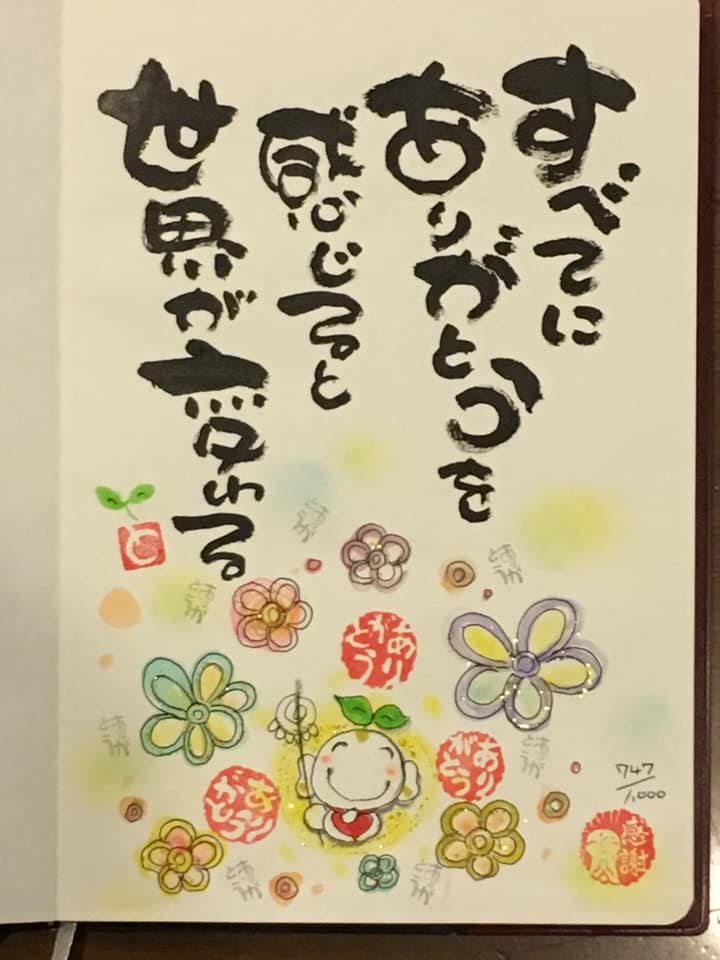 すべてに
ありがとうを
感じると
世界が変わる
と
ありがとう
ありがとう
ありがとう
747/1,000
感謝